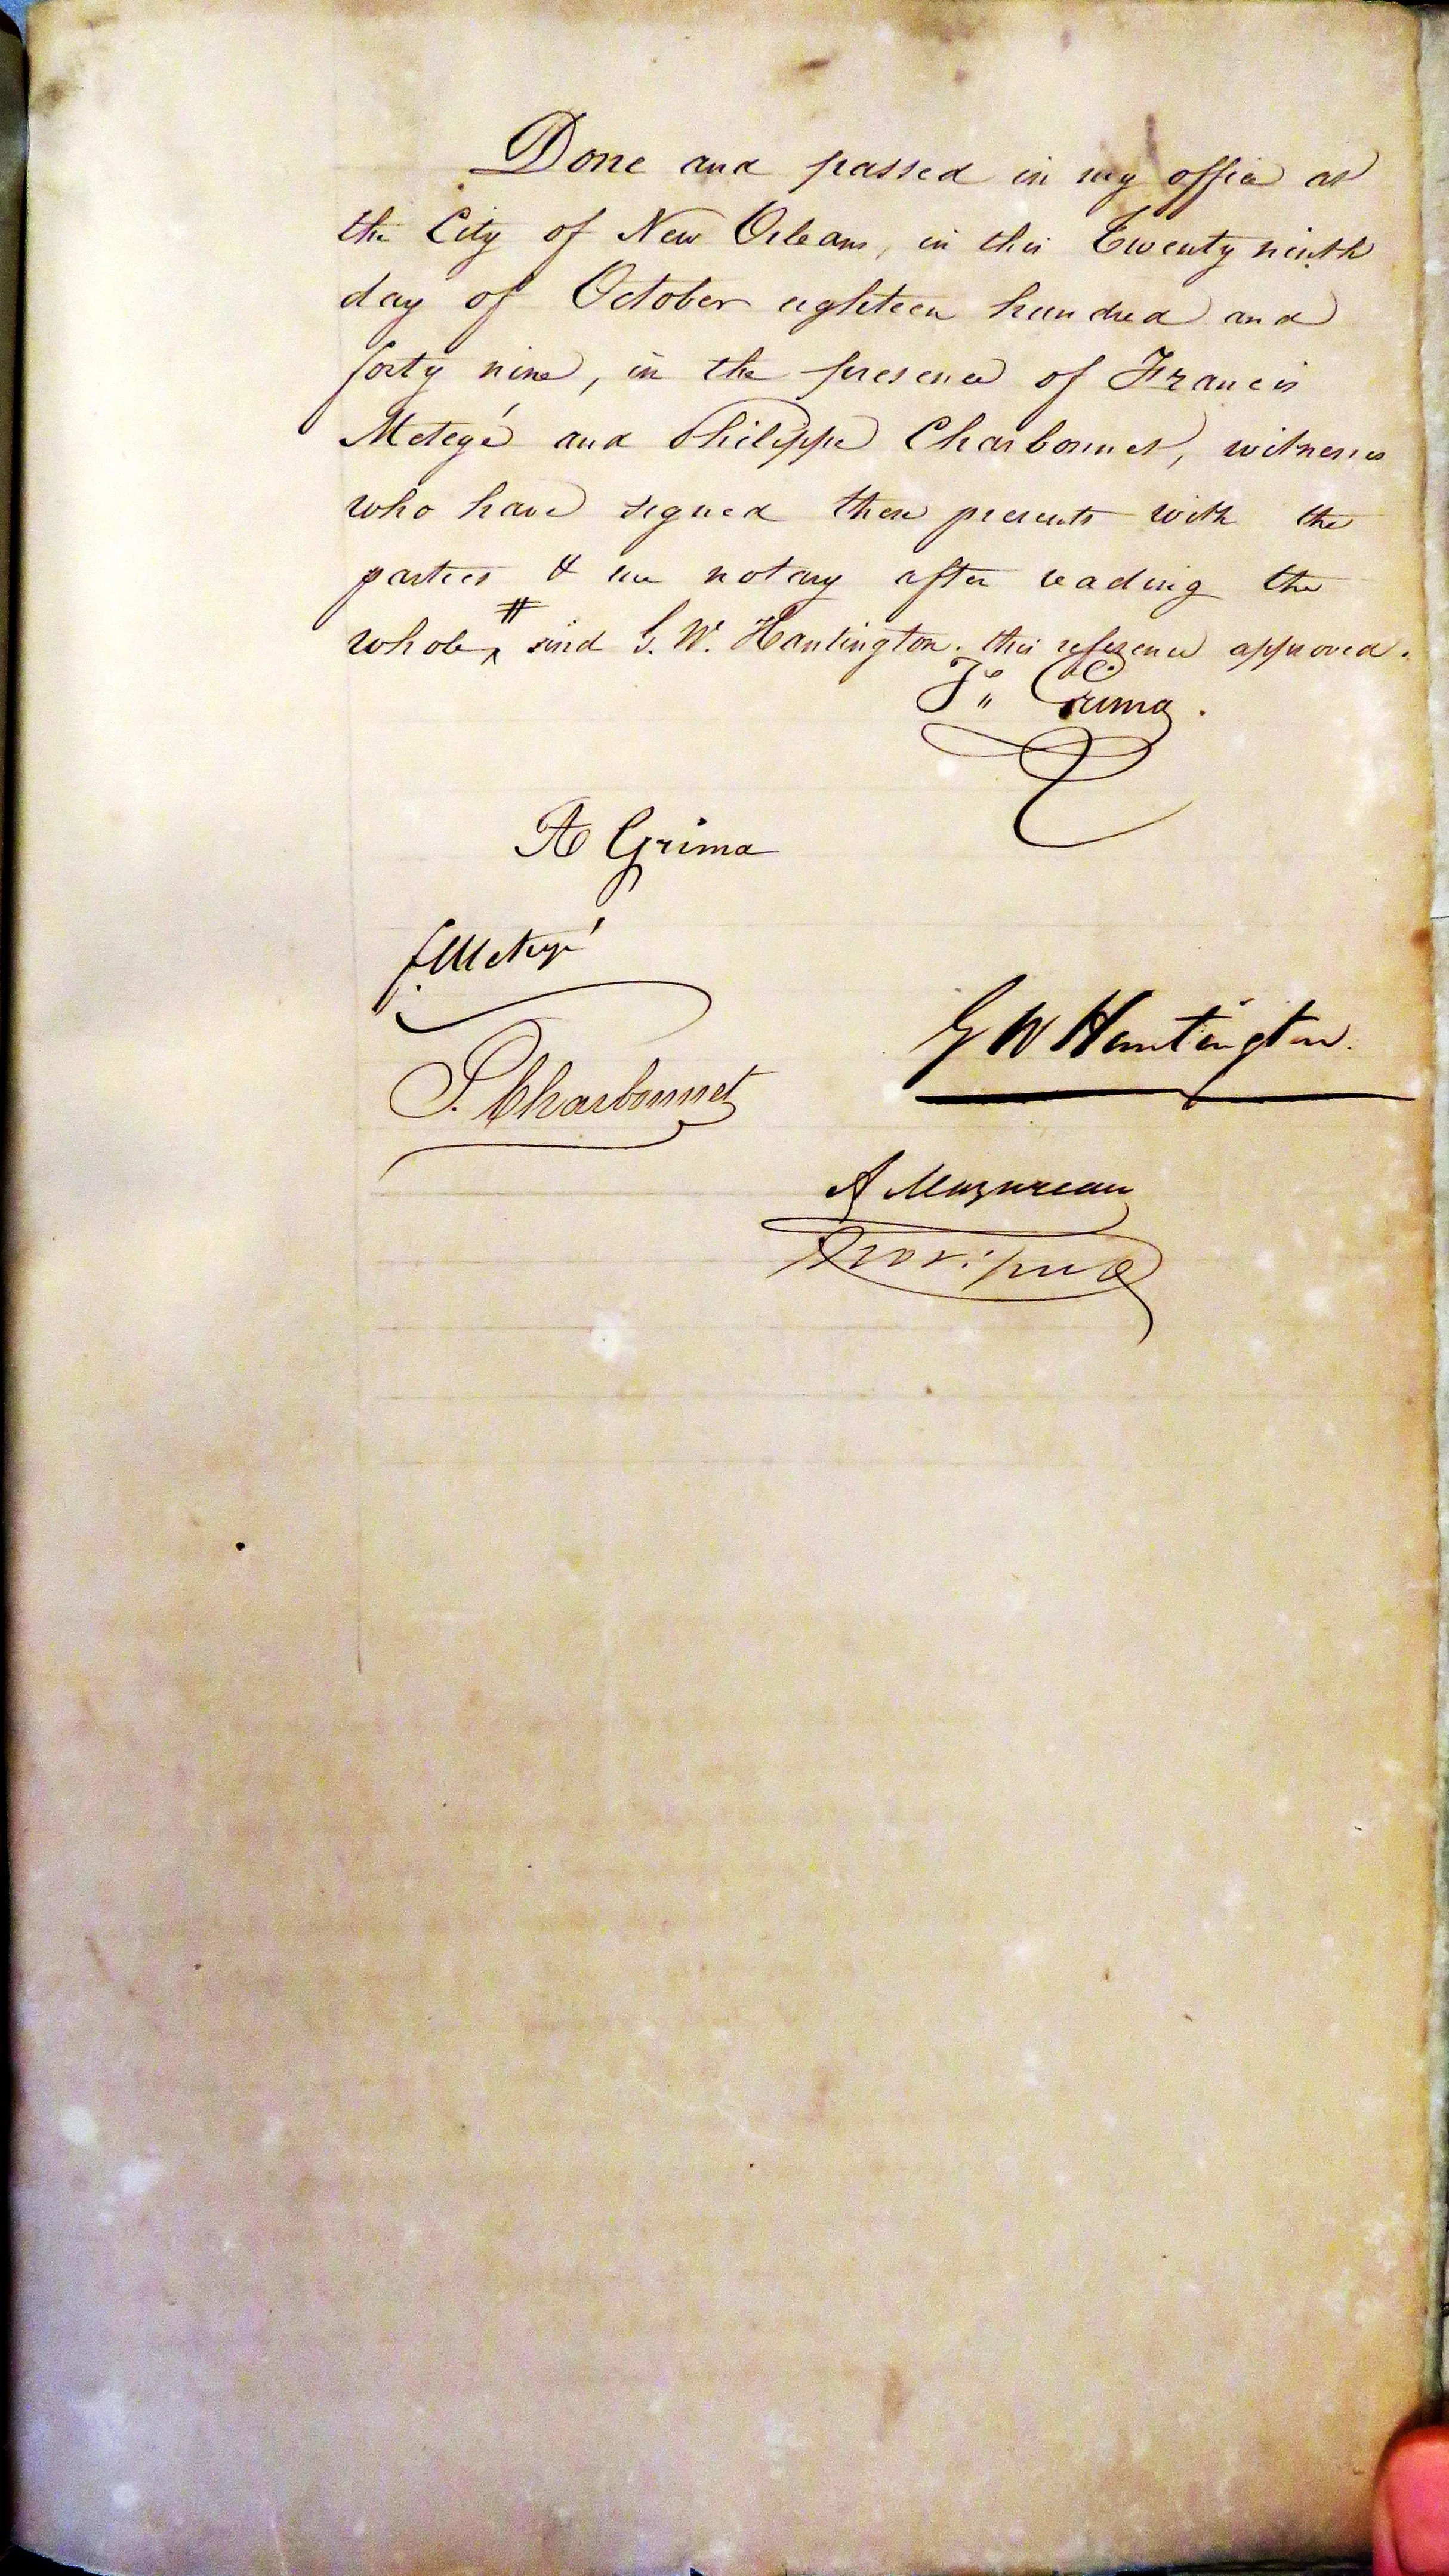 Done and passed in my office at
the City of New Orleans, in this Twenty ninth
day of October eighteen hundred and
forty nine, in the presence of Francis
Metegé and Philippe Charbonnet, witnesses
who have signed these presents with the
parties & me notary after reading the
whole # G. W. Huntington. this reference approved.
Fx. Grima.
A Grima
f. Metegé
G W Huntington.
P. Charbonnet
A Mazureau